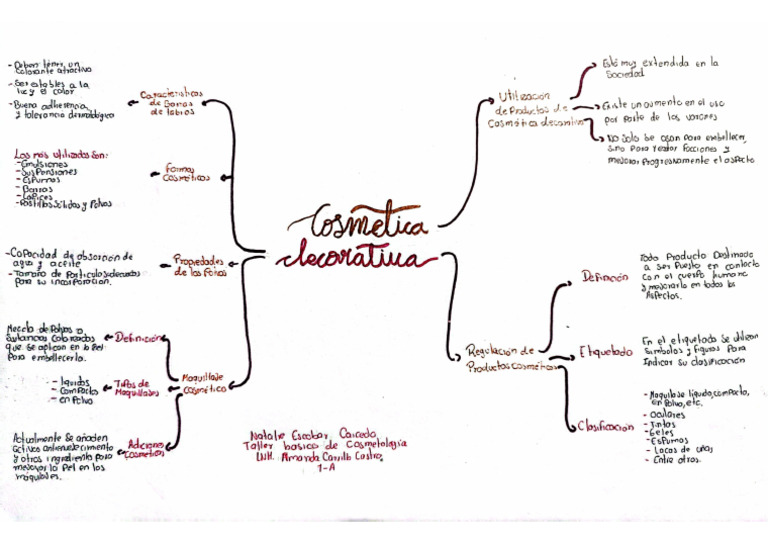 Cosmética
decorativa
Características
de Barras
de labios
- Deben tener, un
colorante atractivo
- Ser estables a la
luz y el calor
- Buena adherencia
y tolerancia dermatológica
Formas
Cosméticas
Las más utilizadas son:
- Emulsiones
- Suspensiones
- Espumas
- Barras
- Lápices
- Pastillas Sólidas y Polvos
Propiedades
de los Polvos
- Capacidad de absorción de
agua y aceite
- Tamaño de Partículas adecuadas
para su incorporación.
Maquillaje
cosmético
Definición
Mezcla de Polvos o
Sustancias Coloreadas
que se aplican en la Piel
Para embellecerla.
Tipos de
Maquillajes
- líquidos
- compactos
- en Polvo
Adiciones
Cosmeticas
Actualmente Se añaden
activos antienvejecimiento
y otros ingrediente para
mejorar la Piel en los
maquillajes.
Utilización
de Productos de
Cosmética decorativa
Está muy extendida en la
Sociedad
Existe un aumento en el uso
por parte de los varones
No Solo Se usan para embellecer,
Sino para realzar facciones y
mejorar Progresivamente el aspecto
Regulación de
Productos cosméticos
Definición
Todo Producto Destinado
a Ser Puesto en contacto
con el cuerpo humano
y mejorarlo en todos los
Aspectos.
Etiquetado
En el etiquetado se utilizan
Símbolos y figuras Para
Indicar Su clasificación
Clasificación
- Maquillaje líquido, compacto,
en Polvo, etc.
- Oculares
- Tintas
- Geles
- Espumas
- Lacas de uñas
- Entre otros.
Natalie Escobar Caicedo
Taller basico de Cosmetología
Lilith Amanda Carrillo Castro.
1-A